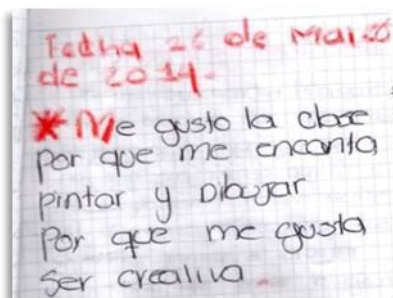 Fecha 26 de Marzo
de 2014-
*Me gusto la clase
por que me encanta
pintar y Dibujar
Por que me gusta
ser creativa.